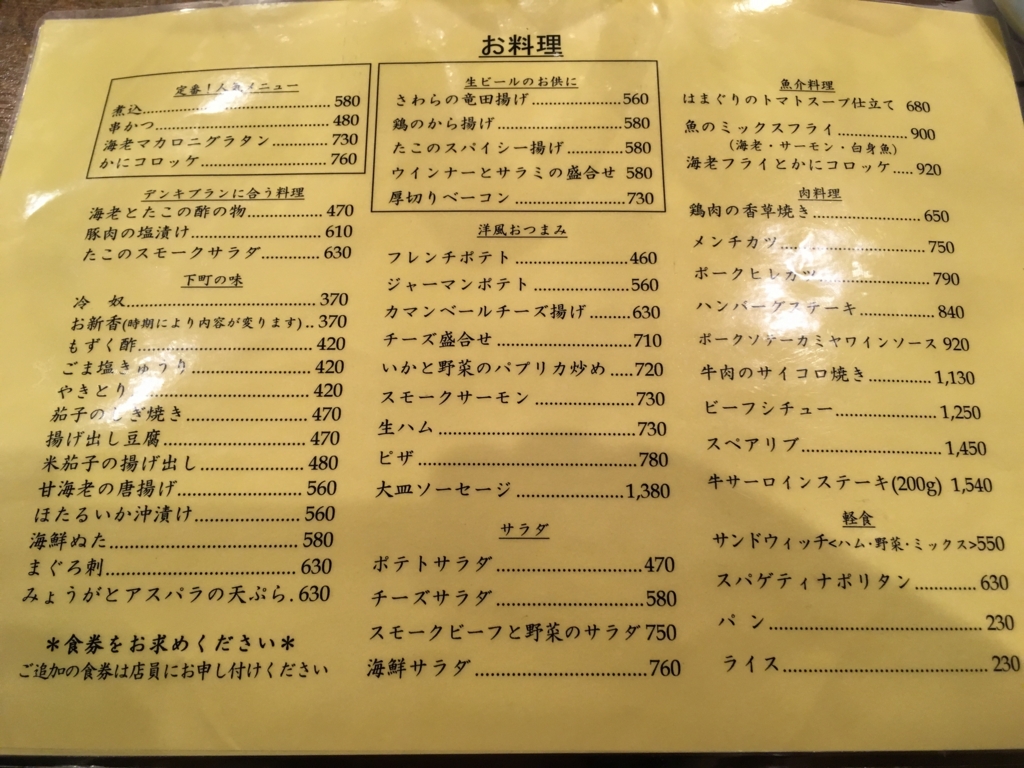 お料理
定番！人気メニュー
煮込……580
串かつ……480
海老マカロニグラタン……730
かにコロッケ……760
デンキブランに合う料理
海老とたこの酢の物……470
豚肉の塩漬け……610
たこのスモークサラダ……630
下町の味
冷　奴……370
お新香(時期により内容が変ります)‥370
もずく酢……420
ごま塩きゅうり……420
やきとり……420
茄子のしぎ焼き……470
揚げ出し豆腐……470
米茄子の揚げ出し……480
甘海老の唐揚げ……560
ほたるいか沖漬け……560
海鮮ぬた……580
まぐろ刺……630
みょうがとアスパラの天ぷら.630
＊食券をお求めください＊
ご追加の食券は店員にお申し付けください
生ビールのお供に
さわらの竜田揚げ……560
鶏のから揚げ……580
たこのスパイシー揚げ……580
ウインナーとサラミの盛合せ 580
厚切りベーコン……730
洋風おつまみ
フレンチポテト……460
ジャーマンポテト……560
カマンベールチーズ揚げ……630
チーズ盛合せ……710
いかと野菜のパプリカ炒め……720
スモークサーモン……730
生ハム……730
ピザ……780
大皿ソーセージ……1,380
サラダ
ポテトサラダ……470
チーズサラダ……580
スモークビーフと野菜のサラダ 750
海鮮サラダ……760
魚介料理
はまぐりのトマトスープ仕立て 680
魚のミックスフライ……900
(海老・サーモン・白身魚)
海老フライとかにコロッケ……920
肉料理
鶏肉の香草焼き……650
メンチカツ……750
ポークヒレカツ……790
ハンバーグステーキ……840
ポークソテーカミヤワインソース 920
牛肉のサイコロ焼き……1,130
ビーフシチュー……1,250
スペアリブ……1,450
牛サーロインステーキ(200g) 1,540
軽食
サンドウィッチ<ハム・野菜・ミックス>550
スパゲティナポリタン……630
パン……230
ライス……230